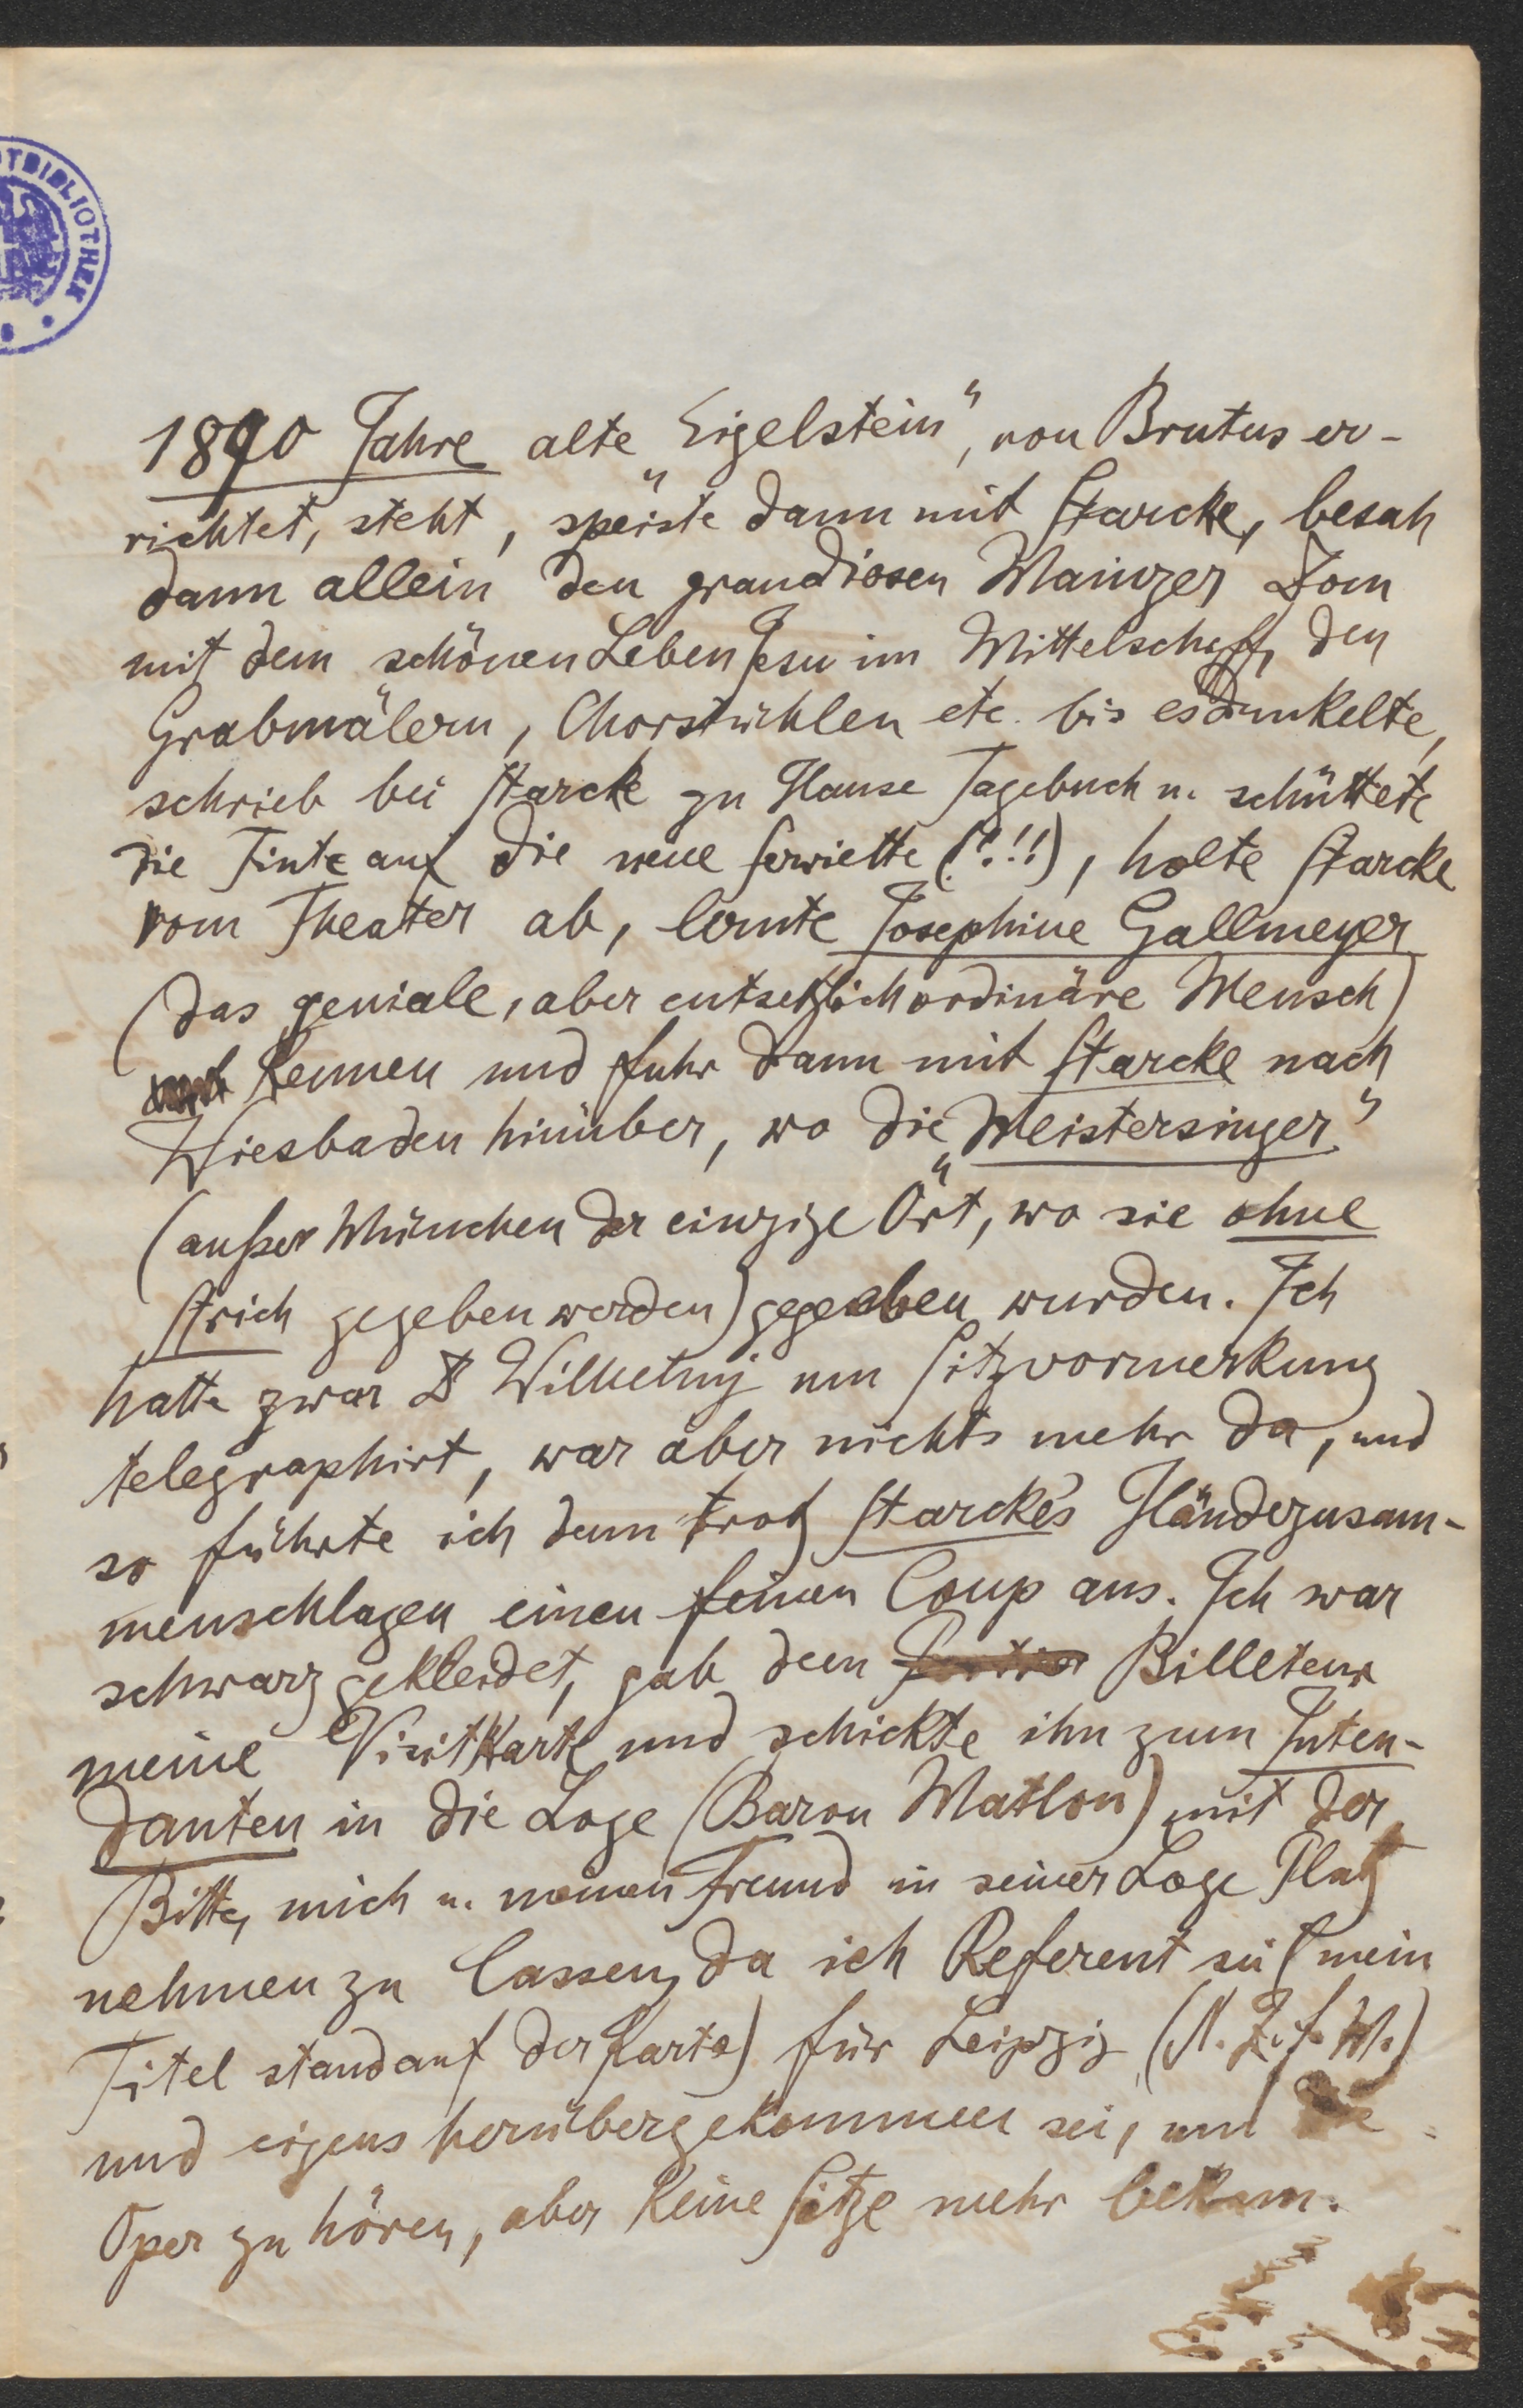 TBIBLIOTHEK
1890 Jahre alte „Eigelstein“, von Brutus er-
richtet, steht, speiste dann mit Starcke, besah
dann allein den grandiosen Mainzer Dom
mit dem schönen Leben Jesu im Mittelscheff, den
Grabmälern, Chorstühlen etc. bis es dunkelte,
schrieb bei Starcke zu Hause Tagebuch u. schüttete
die Tinte auf die neue Serviette (?!!), holte Starcke
vom Theater ab, lernte Josephine Gallmeyer
(das geniale, aber entsetzlich ordinäre Mensch)
kennen und fuhr dann mit Starcke nach
Wiesbaden hinüber, wo die „Meistersinger“
(außer München der einzige Ort, wo sie ohne
Strich gegeben werden) gegeben wurden. Ich
hatte zwar Dr Wilhelmj um Sitzvormerkung
telegraphirt, war aber nichts mehr da, und
so führte ich denn trotz Starcke's Händezusam-
menschlagen einen feinen Coup aus. Ich war
schwarz gekleidet, gab dem Billeteur
meine Visitkarte und schickte ihn zum Inten-
danten in die Loge (Baron Matlon) mit der
Bitte, mich u. meinen Freund in seiner Loge Platz
nehmen zu lassen, da ich Referent sei (mein
Titel stand auf der Karte) für Leipzig (N. Z. f. M.)
und eigens herübergekommen sei, um die
Oper zu hören, aber keine Sitze mehr bekam.